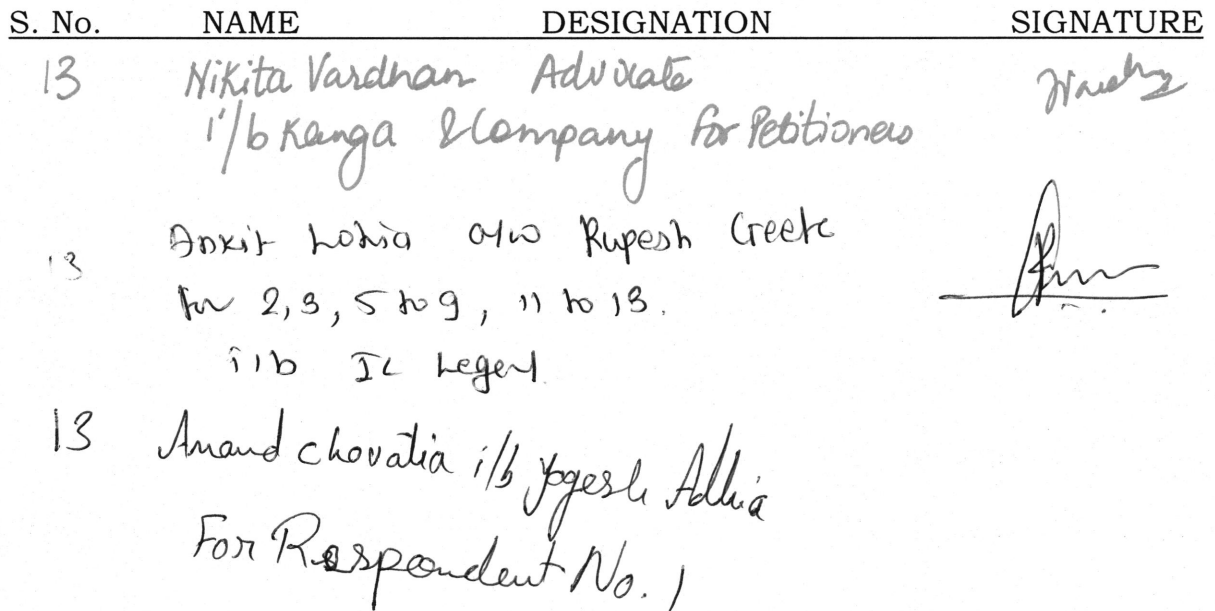 S. No. NAME DESIGNATION SIGNATURE
13 Nikita Vardhan Advocate
i/b Kanga & Company for Petitioners
13 Ankit Lohia a/w Rupesh Geete
for 2, 3, 5 to 9, 11 to 13.
i/b IC Legal
13 Anand Chovatia i/b Yogesh Adhia
For Respondent No. 1